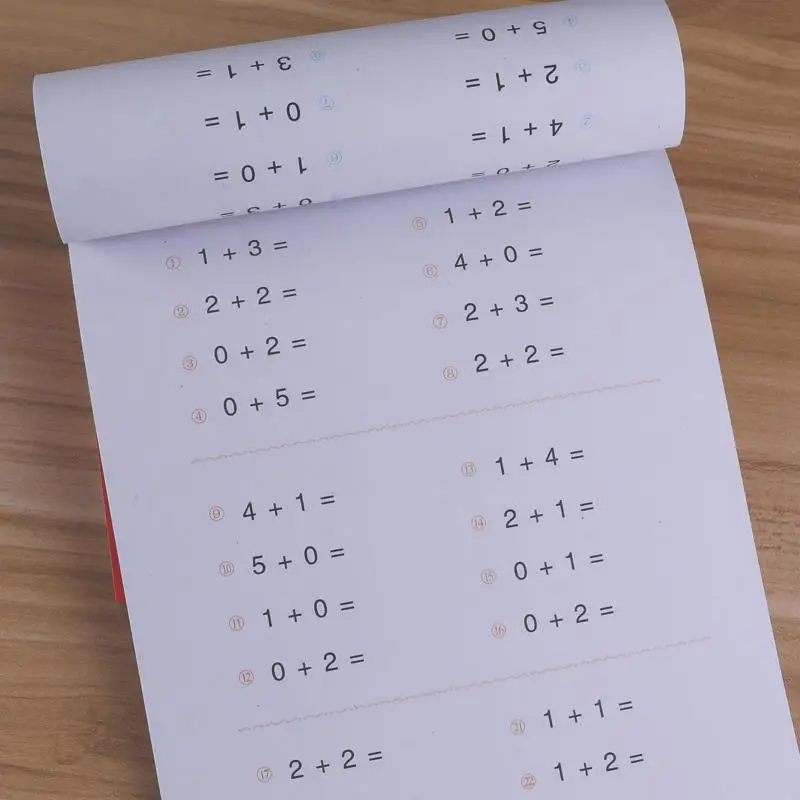 3 + 1 =
0 + 1 =
1 + 0 =
5 + 0 =
2 + 1 =
4 + 1 =
① 1 + 3 =
② 2 + 2 =
③ 0 + 2 =
④ 0 + 5 =
⑤ 1 + 2 =
⑥ 4 + 0 =
⑦ 2 + 3 =
⑧ 2 + 2 =
⑨ 4 + 1 =
⑩ 5 + 0 =
⑪ 1 + 0 =
⑫ 0 + 2 =
⑬ 1 + 4 =
⑭ 2 + 1 =
⑮ 0 + 1 =
⑯ 0 + 2 =
⑰ 2 + 2 =
㉑ 1 + 1 =
㉒ 1 + 2 =